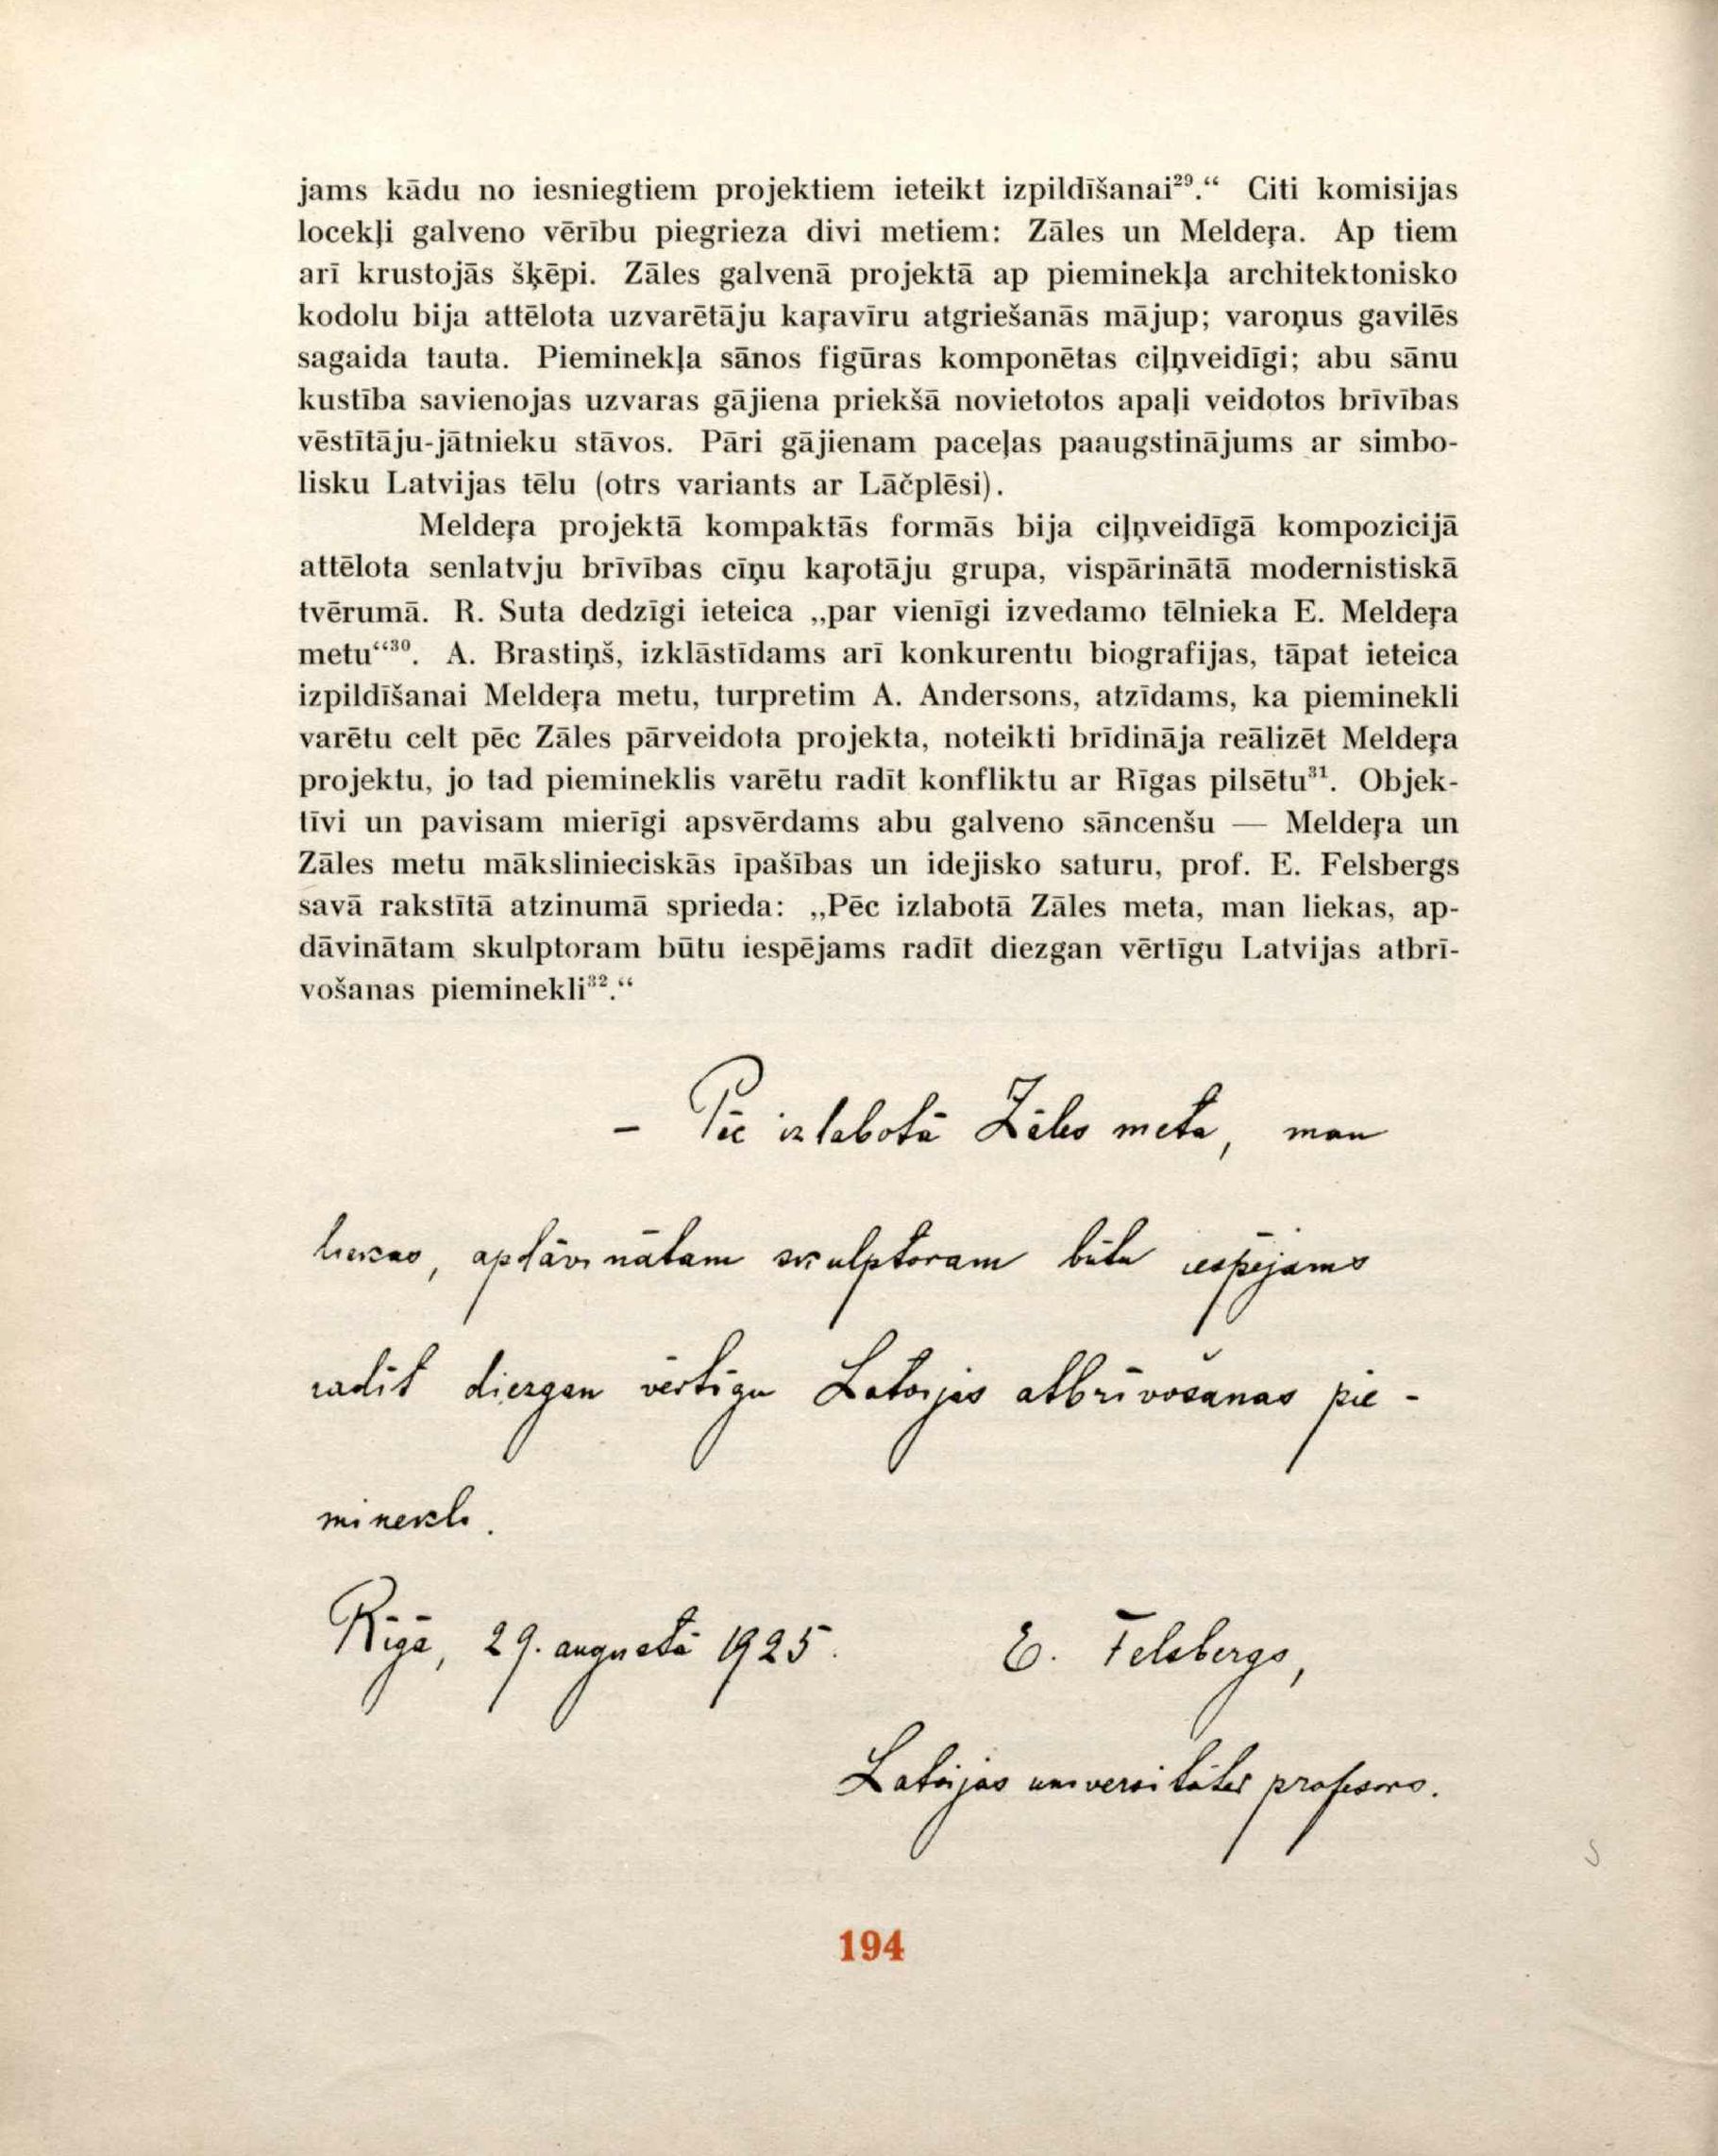 jams kādu no iesniegtiem projektiem ieteikt izpildīšanai²⁹.“ Citi komisijas
locekļi galveno vērību piegrieza divi metiem: Zāles un Meldeŗa. Ap tiem
arī krustojās šķēpi. Zāles galvenā projektā ap pieminekļa architektonisko
kodolu bija attēlota uzvarētāju kaŗavīru atgriešanās mājup; varoņus gavilēs
sagaida tauta. Pieminekļa sānos figūras komponētas ciļņveidīgi; abu sānu
kustība savienojas uzvaras gājiena priekšā novietotos apaļi veidotos brīvības
vēstītāju-jātnieku stāvos. Pāri gājienam paceļas paaugstinājums ar simbo-
lisku Latvijas tēlu (otrs variants ar Lāčplēsi).
Meldeŗa projektā kompaktās formās bija ciļņveidīgā kompozicijā
attēlota senlatvju brīvības cīņu kaŗotāju grupa, vispārinātā modernistiskā
tvērumā. R. Suta dedzīgi ieteica „par vienīgi izvedamo tēlnieka E. Meldeŗa
metu“³⁰. A. Brastiņš, izklāstīdams arī konkurentu biografijas, tāpat ieteica
izpildīšanai Meldeŗa metu, turpretim A. Andersons, atzīdams, ka pieminekli
varētu celt pēc Zāles pārveidota projekta, noteikti brīdināja reālizēt Meldeŗa
projektu, jo tad piemineklis varētu radīt konfliktu ar Rīgas pilsētu³¹. Objek-
tīvi un pavisam mierīgi apsvērdams abu galveno sāncenšu — Meldeŗa un
Zāles metu mākslinieciskās īpašības un idejisko saturu, prof. E. Felsbergs
savā rakstītā atzinumā sprieda: „Pēc izlabotā Zāles meta, man liekas, ap-
dāvinātam skulptoram būtu iespējams radīt diezgan vērtīgu Latvijas atbrī-
vošanas pieminekli³².“
– Pēc izlabotā Zāles meta, man
liekas, apdāvinātam skulptoram būtu iespējams
radīt diezgan vērtīgu Latvijas atbrīvošanas pie-
minekli.
Rīgā, 29. augustā 1925. E. Felsbergs,
Latvijas universitātes profesors.
194